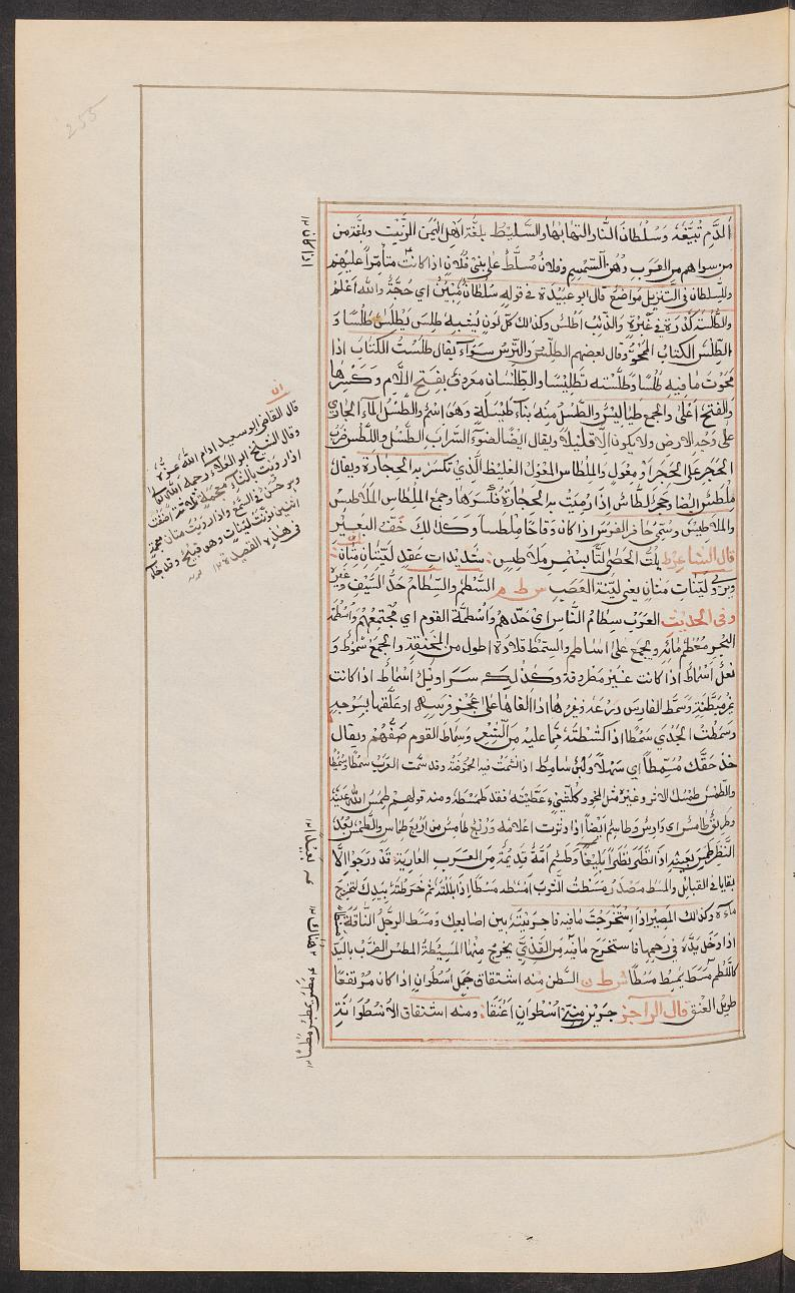 الدم تبيغه وسلطان النار التهابها والسليط بلغة اهل اليمن الزيت وبلغة من
من سواهم من العرب دهن السمسم وفلان مسلط على بني فلان اذا كانت متأمرا عليهم
وللسلطان في التنزيل مواضع قال ابو عبيدة في قوله سلطان مبين اي حجة والله اعلم
والطلسة كدرة في غبرة والذئب اطلس وكذالك كل لون يشبهه طلس يطلس طلسا و
الطلس الكتاب الممحو وقال بعضهم الطلس والترس سواء يقال طلست الكتاب اذا
محوت ما فيه طلسا وطلسته تطليسا والطلسان معروف بفتح اللام وكسرها
والفتح اعلى والجمع طيالس والطسل منه بناء طيسلة وهو اسم والطسل الماء الجاري
على وجه الارض ولا يكون الا قليلا ويقال ايضا لضوء السراب الطسل واللطس ضرب
الحجر على الحجر او معول والملطاس المعول الغليظ الذي تكسر به الحجارة ويقال
ملطس ايضا وحجر لطاس اذا رميت به الحجارة فكسرها وجمع الملطاس الملاطيس
والملاطس وسمي حافر الفرس اذا كان وقاحا ملطسا وكذالك خف البعير
قال الشاعر يلت الحصى لتا بسمر ملاطس شديدات عقد لينات متان
ويروى لينات مثان يعني لينة العصب س ط م السطم والسطام حد السيف وغيره
وفي الحديث العرب سطام الناس اي حدهم واسطمة القوم اي مجتمعهم واسطمة
البحر معظم مائه ويجمع على اساطم والسمط قلادة اطول من المخنقة والجمع سموط و
نعل اسماط اذا كانت غير مطروقة وكذلك سراويل اسماط اذا كانت
غير مبطنة وسمط الفارس درعه وغيرها اذا القاها على عجز فرسه او علقها بسرجه
وسمطت الجدي سمطا اذا كشطته مما عليه من الشعر وسماط القوم صفهم ويقال
خذ حقك مسمطا اي سهلا ولبن سامط
والطمس طمسك الاثر وغيره مثل المحو وكل شيء غطيته فقد طمسته ومنه قولهم طمس الله عينه
وطريق طامس اي دارس وطاسم ايضا اذا دثرت اعلامه وربع طامس من اربع طماس والطمس بعد
النظر طمس بعينه اذا نظر نظرا بليغا وطسم امة قديمة من العرب العاربة قد درجوا الا
بقايا في القبائل والمسط مصدر مسطت الثوب امسطه مسطا اذا بللته ثم خرطته بيدك لتخرج
ماءه وكذالك المصير اذا استخرجت ما فيه فاجريته بين اصابعك ومسط الرجل الناقة
اذا دخل يده في رحمها فاستخرج ما فيه من القذى يخرج منها المسيطة المطس الضرب باليد
كاللطم مسط يمسط مسطا س ط ن السطن منه اشتقاق جمل اسطوان اذا كان مرتفعا
طويل العنق قال الراجز جربن مني اسطوانا اعنقا ومنه اشتقاق الاسطوانة
قال القاضي ابو سعيد ادام الله عزه
وقال الشيخ ابو العلاء رحمه الله
في هذه القصيدة